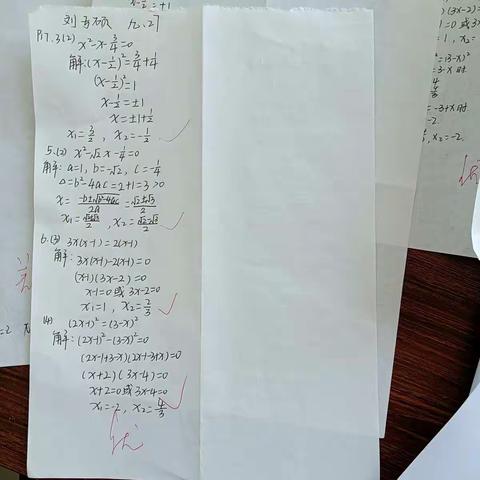 x-½=±1
九.27
P17.3(2) x²-x-¾=0
解:(x-½)²=¾+¼
(x-½)²=1
x-½=±1
x=±1+½
x₁=3/2, x₂=-½
5.(2) x²-√2x-¼=0
解: a=1, b=-√2, c=-¼
△=b²-4ac=2+1=3>0
x=(-b±√b²-4ac)/2a=(√2±√3)/2
x₁=(√2+√3)/2, x₂=(√2-√3)/2
6.(3) 3x(x-1)=2(x-1)
解: 3x(x-1)-2(x-1)=0
(x-1)(3x-2)=0
x-1=0或3x-2=0
x₁=1, x₂=2/3
(4) (2x-1)²=(3-x)²
解:(2x-1)²-(3-x)²=0
(2x-1+3-x)(2x-1-3+x)=0
(x+2)(3x-4)=0
x+2=0或3x-4=0
x₁=-2, x₂=4/3
优
)(3x-2)=0
1=0或3
=1, x₂=
²=(3-x)²
=3-x时
4/3
=-3+x时
-2
, x₂=-2.